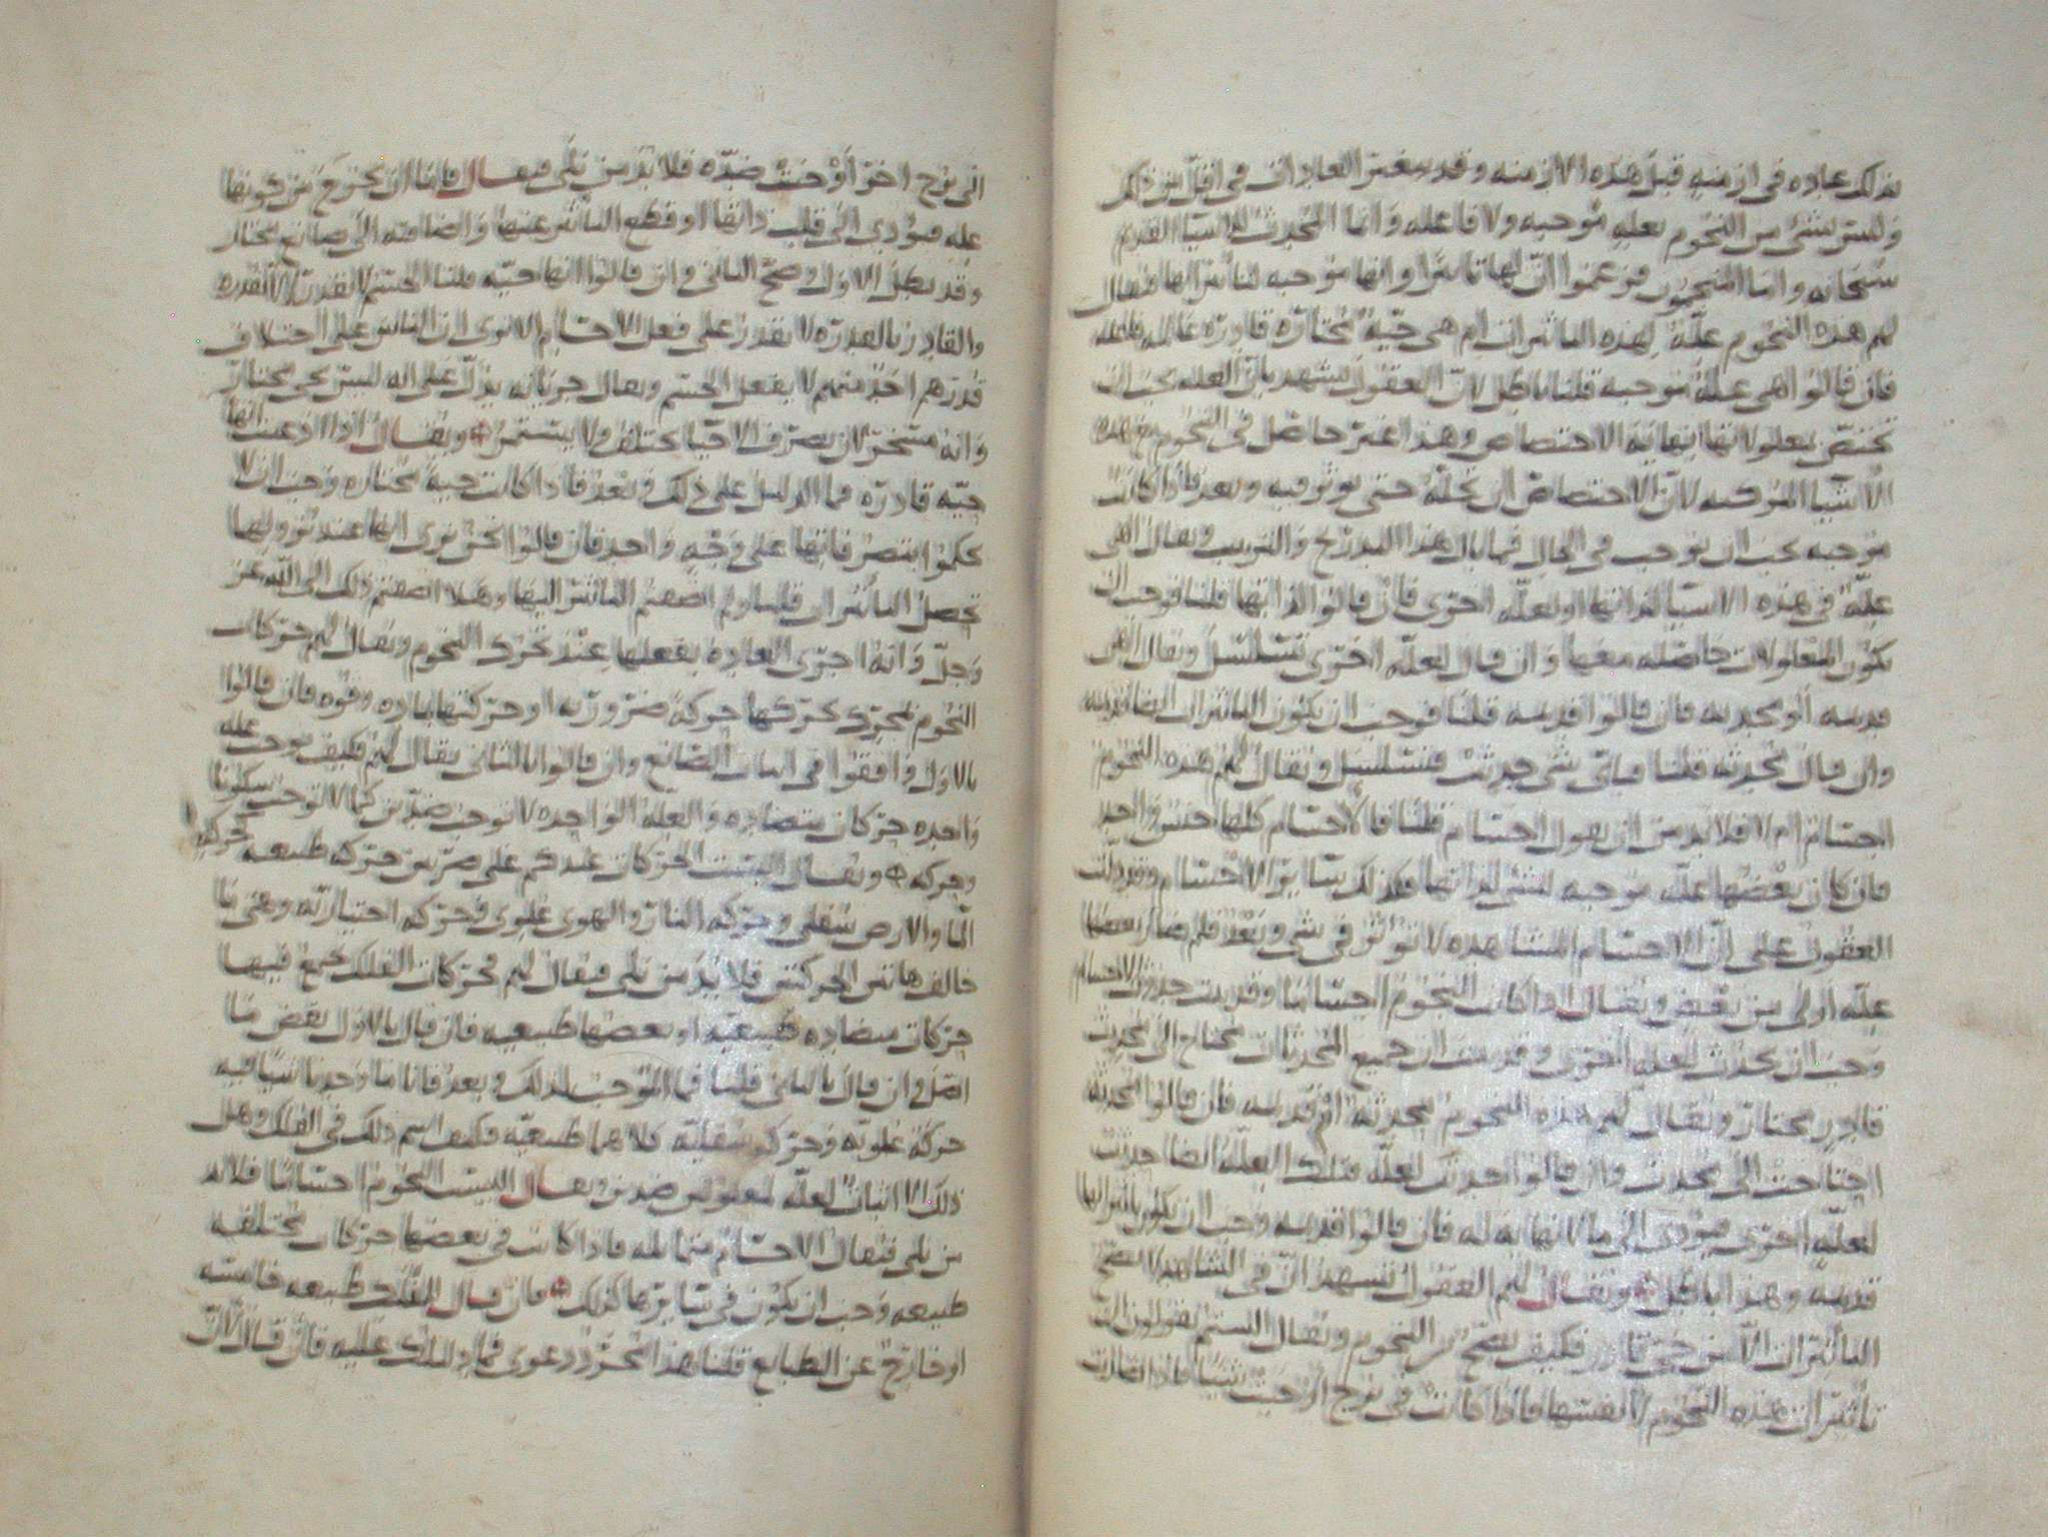 بذلك عاده في ازمنه قبل هذه الازمنه وقد تتغير العادات في اقل من ذلك
وليس شيء من النجوم بعله موجبه ولا فاعله وانما المحدث للاشيا القديم
سبحانه واما المنجمون فزعموا ان لها تاثيرا وانها موجبه لتاثيراتها فيقال
لهم هذه النجوم علة لهذه التاثيرات ام هي حية مختارة قادرة عالمه فاعله
فان قالوا هي علة موجبه قلنا باطل لان العقول تشهد بان العله يجب ان
تختص بمعلولاتها نهاية الاختصاص وهذا غير حاصل في النجوم مع هذه
الاشيا لان الاختصاص ان تحله حتى يوثر فيه وبعد فاذا كانت
موجبه يجب ان توجب في الحال فما بال هذا التدريج والترتيب ويقال اهي
علة في هذه الاشيا لذواتها او لعله اخرى فان قالوا لذاتها قلنا فوجب ان
تكون المعلولات حاصله معها وان قال لعله اخرى تتسلسل ويقال اهي
قديمه او محدثه فان قالوا قديمه قلنا فوجب ان يكون التاثيرات ايضا قديمه
وان قال محدثه قلنا فباي شي حدثت فتسلسل ويقال لهم هذه النجوم
اجسام ام لا فلا بد من ان يقول اجسام قلنا فالاجسام كلها جنس واحد
فان كان بعضها علة موجبه لشي لذاتها فكذلك سائر الاجسام وقد دلت
العقول على ان الاجسام المشاهده لا توثر في شي وبعد فلم صار بعضها
علة اولى من بعض ويقال اذا كانت النجوم اجساما وقد ثبت حدوث الاجسام
وجب ان تحدث لعله اخرى وقد ثبت ان جميع المحدثات تحتاج الى محدث
قادر مختار ويقال لهم هذه النجوم محدثة ام قديمه فان قالوا محدثه
احتاجت الى محدث وان قالوا حدثت لعلة فتلك العلة ايضا حدثت
لعلة اخرى فيؤدي الى ما لا نهاية له فان قالوا قديمه وجب ان يكون تاثيراتها
قديمة وهذا باطل ويقال لهم العقول تشهد ان في الشاهد لا تصح
التاثيرات الا من حي قادر فكيف تصح من النجوم ويقال الستم تقولون ان
تاثيرات هذه النجوم لانفسها فاذا كانت في برج اوجبت شيئا فاذا انتقلت
الى برج اخر اوجبت ضده فلا بد من بلى فيقال فاما ان يخرج من كونها
علة فيؤدي الى قلب ذاتها او قطع التاثير عنها واضافته الى صانع مختار
وقد بطل الاول وصح الثاني وان قالوا انها حية قلنا الجسم لا يقدر الا بالقدره
والقادر بالقدرة لا يقدر على فعل الاجسام الا ترى ان الناس على اختلاف
قدرهم احد منهم لا يفعل الجسم ويقال جريانه يدل على انه ليس بحي مختار
وانه مسخر لان تصرف الاحيا يختلف ولا يستمر ويقال اذا ادعيت انها
حية قادرة فما الدليل على ذلك وبعد فاذا كانت حية مختاره وجب ان لا
تحكموا بتصرفاتها على وجه واحد فان قالوا نحن نرى انها عند نزولها
تحصل التاثيرات قلنا ولم اضفتم التاثير اليها وهلا اضفتم ذلك الى الله عز
وجل وانه اجرى العاده بفعلها عند تحرك النجوم ويقال لهم حركات
النجوم بمحرك يحركها حركة ضرورية او حركتها باراده وقوه فان قالوا
بالاول وافقوا في اثبات الصانع وان قالوا بالثاني يقال لهم فكيف يوجب عله
واحده حركات متضاده والعلة الواحده لا توجب ضدين كما لا توجب سكونا
وحركه ويقال اليست الحركات عندكم على ضربين حركه طبيعه كحركه
الما والارض سفلي وحركه النار والهوى علوي وحركه اختياريه وهي ما
خالف هاتين الحركتين فلا بد من بلى فيقال لهم فحركات الفلك جميع فيها
حركات متضاده طبيعية او بعضها طبيعيه فان قال بالاول نقض ما
اصل وان قال بالثاني قلنا فما الموجب لذلك وبعد فانا ما وجدنا شيا فيه
حركة علوية وحركة سفلية كلاهما طبيعية فكيف اسم ذلك في الفلك وهل
ذلك الا اثبات لعلة لمعلولين ضدين ويقال اليست النجوم اجساما فلا بد
من بلى فيقال الاجسام متماثله فاذا كانت في بعضها حركات مختلفه
طبيعه وجب ان يكون في سايرها كذلك فان قال الفلك طبيعه خامسه
او خارج عن الطبايع قلنا هذا مجرد دعوى فما دليلك عليه فان قال لان